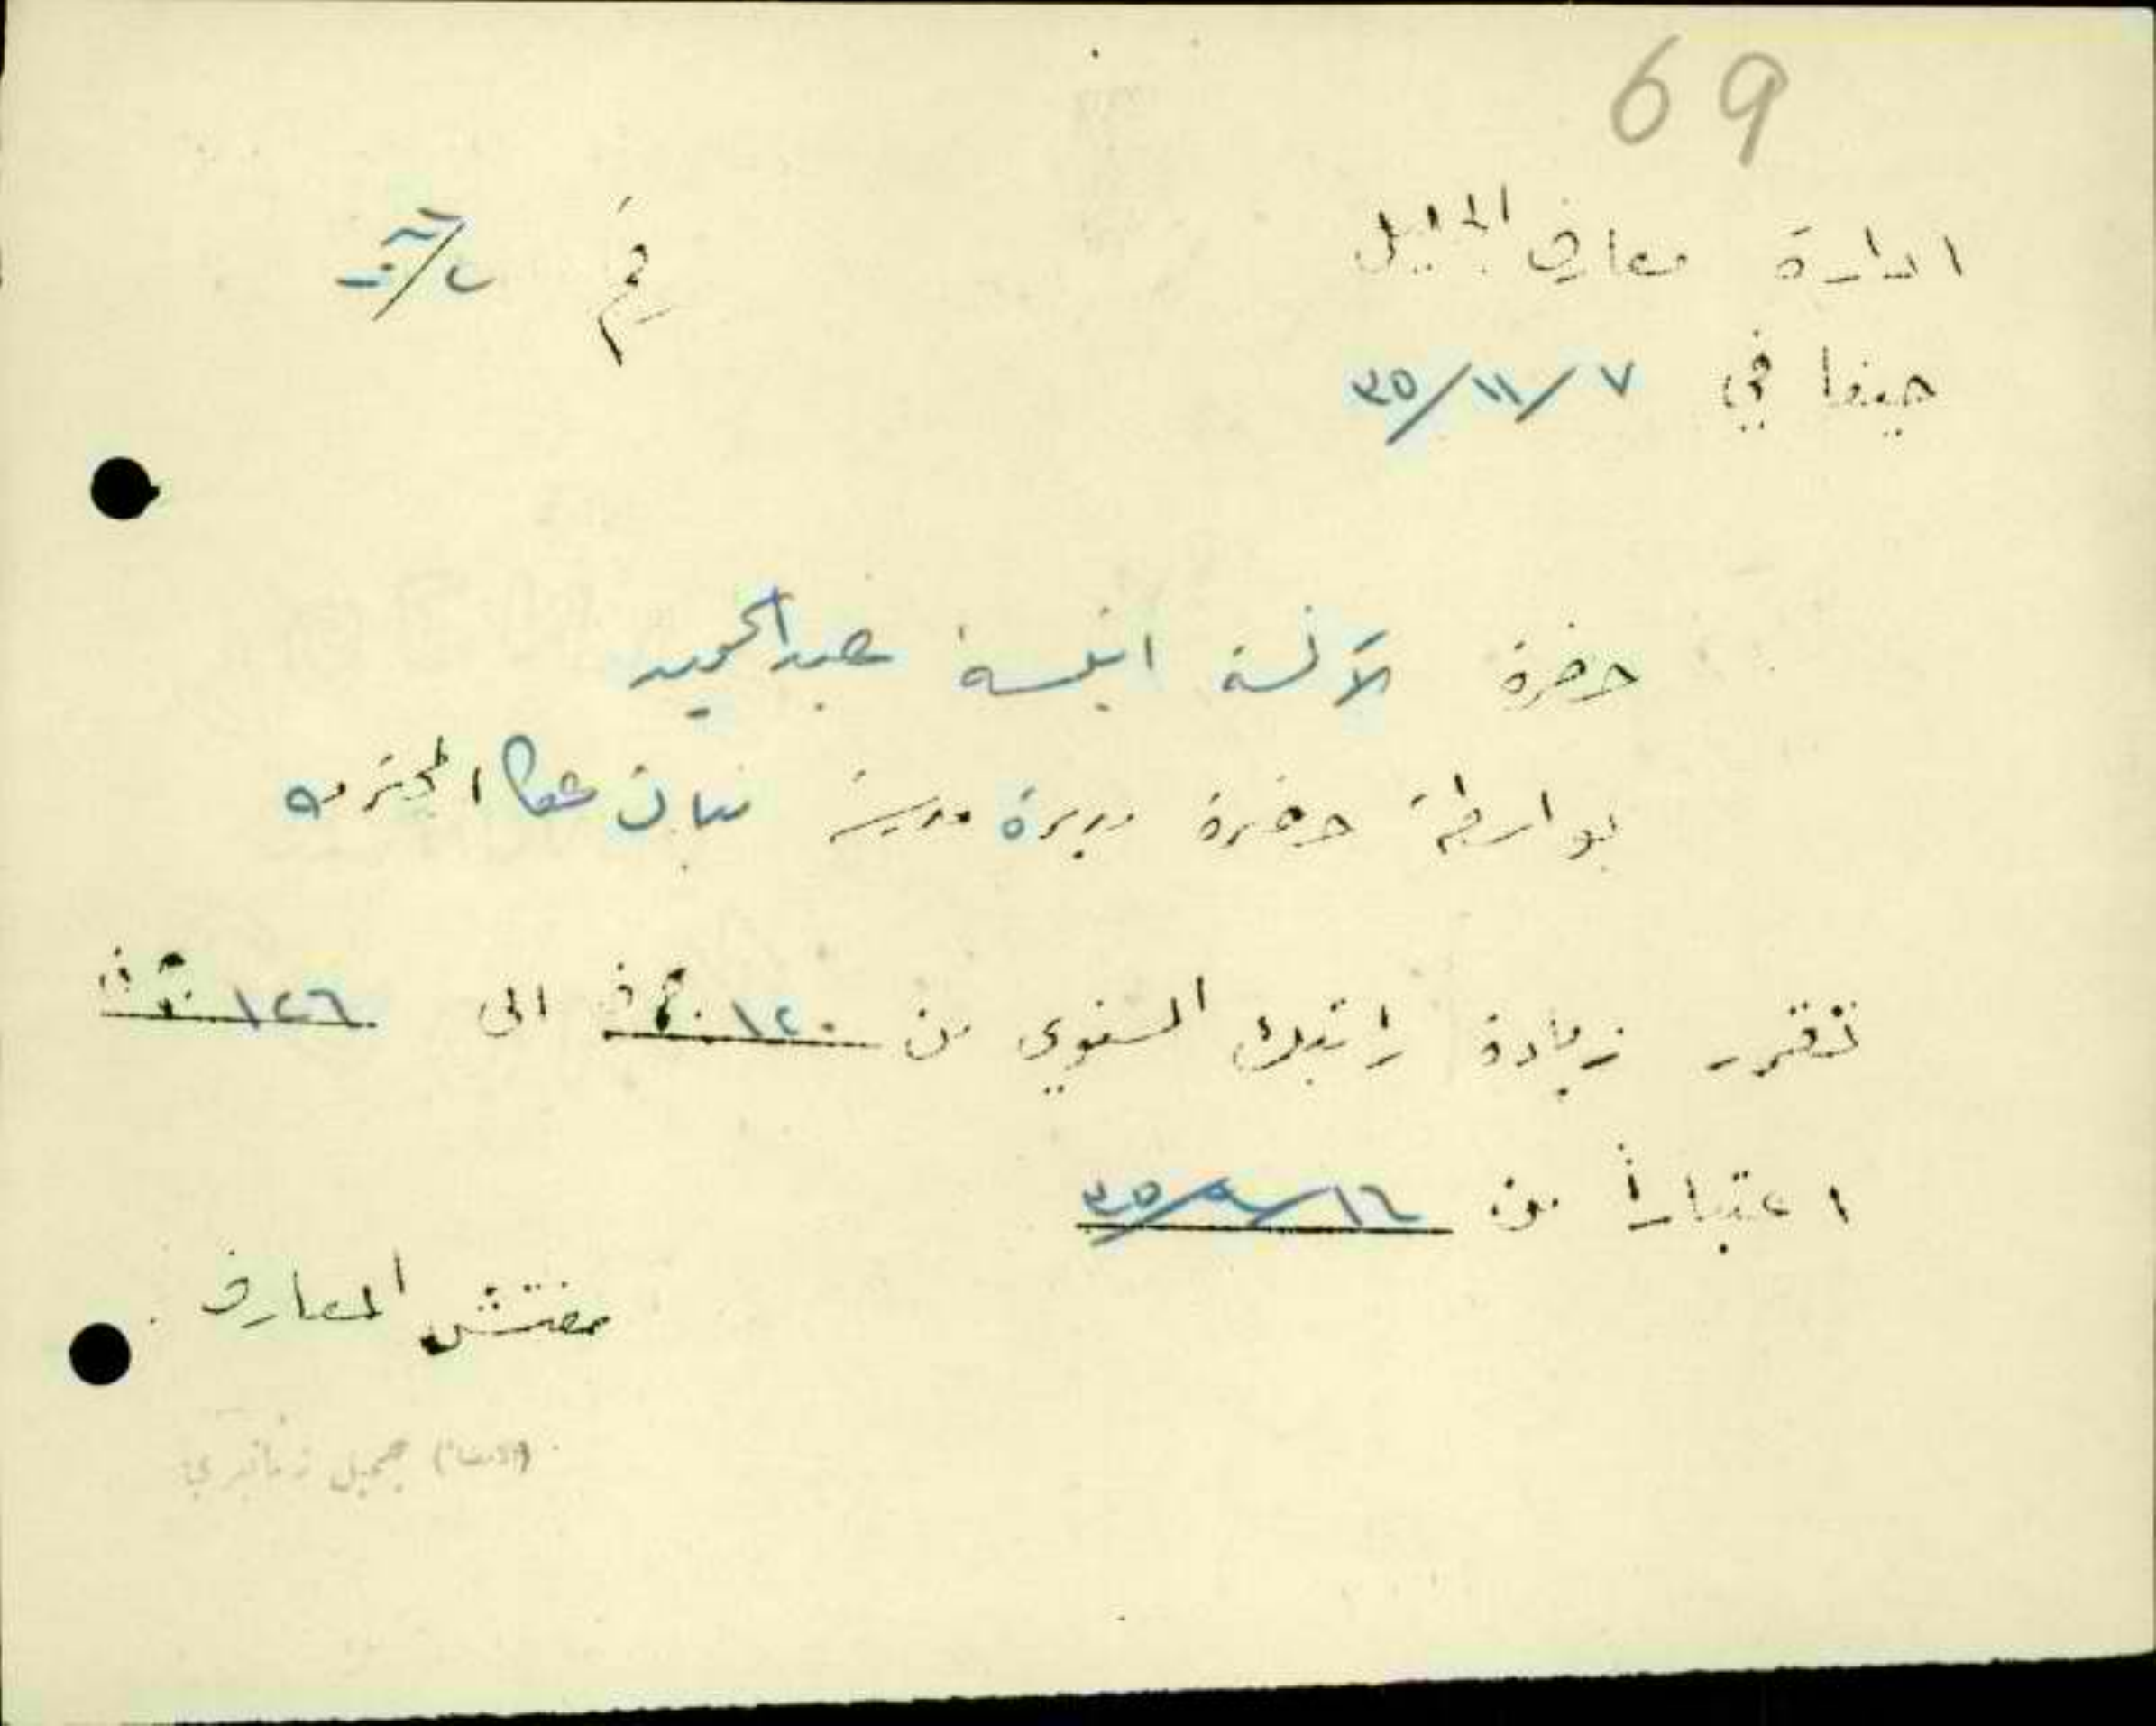 69
ادارة معارف الجليل
رقم
حيفا في ٧/١١/٣٥
حضرة الآنسة انيسة عبدالحميد
بواسطة حضرة مديرة مدرسة بنات عكا المحترمه
تقرر زيادة راتبك السنوي من ١٢٠ الى ١٢٦
اعتباراً من ١٦/٩/٣٥
مفتش المعارف
(الامضاء) جميل